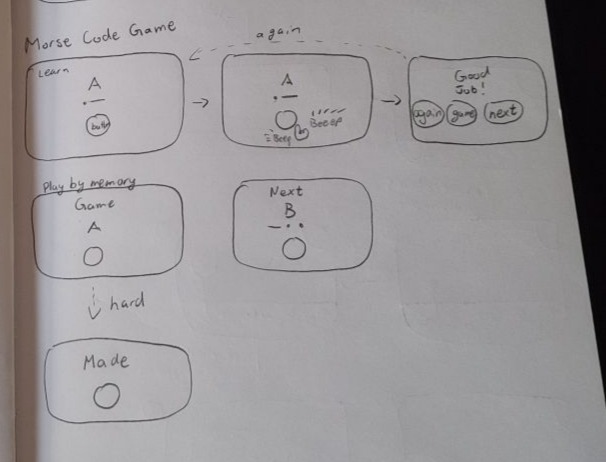 Morse Code Game
again
Learn
A
.—
butt
A
.—
Beep
Beeep
Good
Job!
again game next
Play by memory
Game
A
Next
B
—...
hard
Made